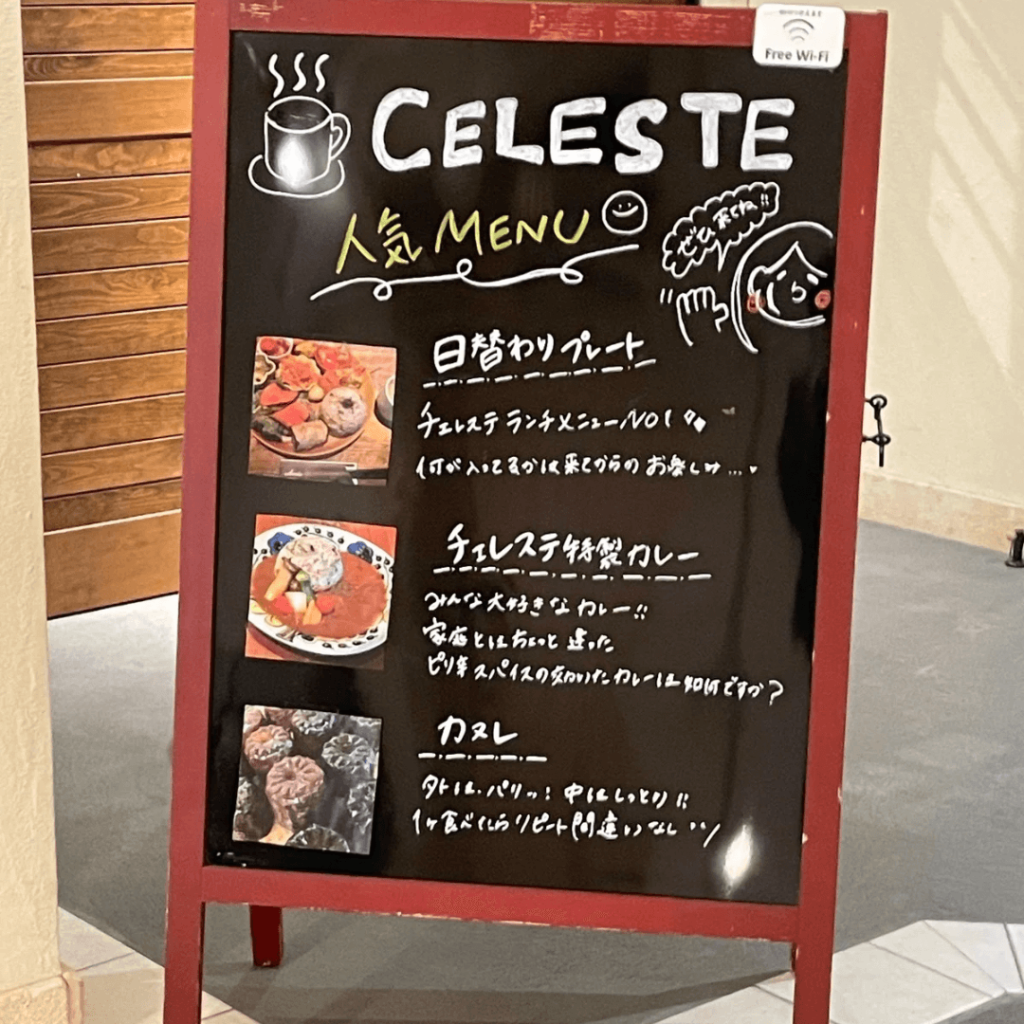 Free Wi-Fi
CELESTE
人気 MENU
ぜひ来てね!!
日替わりプレート
チェレステランチメニューNO1
何が入ってるかは来てからのお楽しみ...♥
チェレステ特製カレー
みんな大好きなカレー!!
家庭とはちょっと違った
ピリ辛スパイスの効いたカレーは如何ですか?
カヌレ
外はパリッ! 中はしっとり!!
1ヶ食べたらリピート間違いなし